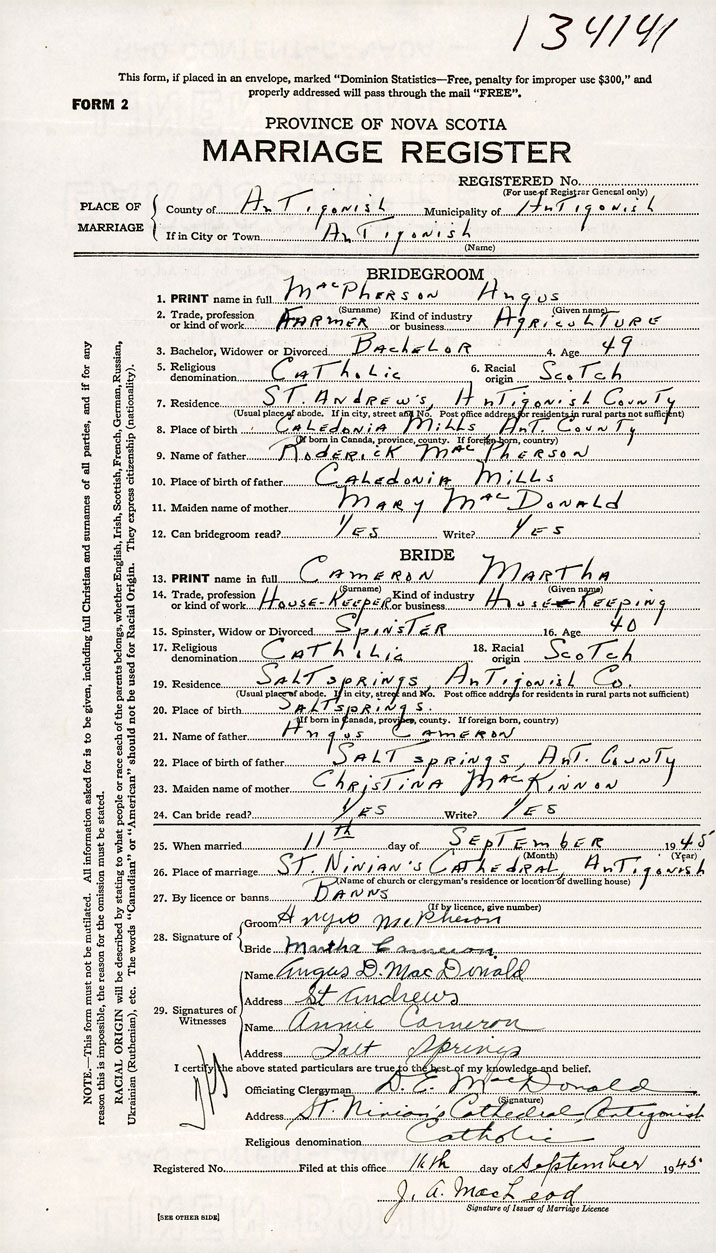 134141
This form, if placed in an envelope, marked "Dominion Statistics—Free, penalty for improper use $300," and
properly addressed will pass through the mail "FREE".
FORM 2
PROVINCE OF NOVA SCOTIA
MARRIAGE REGISTER
REGISTERED No.
(For use of Registrar General only)
PLACE OF MARRIAGE
County of AnTigonish Municipality of AnTigonish
If in City or Town AnTigonish
(Name)
BRIDEGROOM
1. PRINT name in full MacPherson Angus
(Surname) (Given name)
2. Trade, profession or kind of work Farmer Kind of industry or business Agriculture
3. Bachelor, Widower or Divorced Bachelor 4. Age 49
5. Religious denomination Catholic 6. Racial origin Scotch
7. Residence St. Andrew's, Antigonish County
(Usual place of abode. If in city, street and No. Post office address for residents in rural parts not sufficient)
8. Place of birth Caledonia Mills, Ant. County
(If born in Canada, province, county. If foreign born, country)
9. Name of father Roderick MacPherson
10. Place of birth of father Caledonia Mills
11. Maiden name of mother Mary MacDonald
12. Can bridegroom read? Yes Write? Yes
BRIDE
13. PRINT name in full Cameron Martha
(Surname) (Given name)
14. Trade, profession or kind of work House-Keeper Kind of industry or business House-Keeping
15. Spinster, Widow or Divorced Spinster 16. Age 40
17. Religious denomination Catholic 18. Racial origin Scotch
19. Residence Saltsprings, Antigonish Co.
(Usual place of abode. If in city, street and No. Post office address for residents in rural parts not sufficient)
20. Place of birth Saltsprings.
(If born in Canada, province, county. If foreign born, country)
21. Name of father Angus Cameron
22. Place of birth of father Salt springs, Ant. County
23. Maiden name of mother Christina MacKinnon
24. Can bride read? Yes Write? Yes
25. When married 11th day of September 1945
(Month) (Year)
26. Place of marriage St. Ninian's Cathedral, Antigonish
(Name of church or clergyman's residence or location of dwelling house)
27. By licence or banns Banns
(If by licence, give number)
28. Signature of
Groom Angus McPherson
Bride Martha Cameron.
29. Signatures of Witnesses
Name Angus D. MacDonald
Address St Andrews
Name Annie Cameron
Address Salt Springs
I certify the above stated particulars are true to the best of my knowledge and belief.
Officiating Clergyman D. E. MacDonald
(Signature)
Address St. Ninian's Cathedral, Antigonish
Religious denomination Catholic
Registered No. Filed at this office 14th day of September 1945
J. A. MacLeod
Signature of Issuer of Marriage Licence
[SEE OTHER SIDE]
NOTE.—This form must not be mutilated. All information asked for is to be given, including full Christian and surnames of all parties, and if for any
reason this is impossible, the reason for the omission must be stated.
RACIAL ORIGIN will be described by stating to what people or race each of the parents belongs, whether English, Irish, Scottish, French, German, Russian,
Ukrainian (Ruthenian), etc. The words "Canadian" or "American" should not be used for Racial Origin. They express citizenship (nationality).